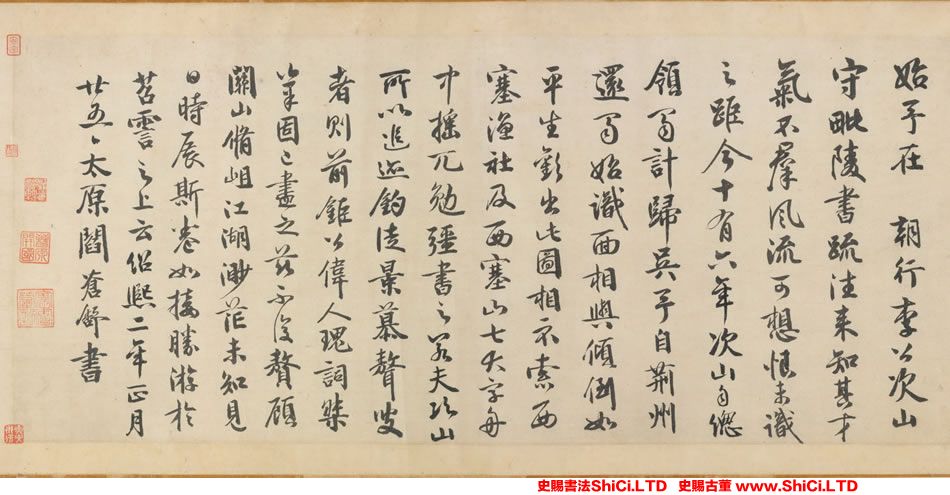 始予在 朝行李公次山
守毗陵書疏往来知其才
氣不羣風流可想恨未識
之距今十有六年次山自總
領蜀計歸吳予自荆州
還蜀始識面相與傾倒如
平生歡出此圖相示索西
塞漁社及西塞山七大字舟
中搖兀勉彊書之若夫次山
所以追迹釣徒景慕聱叟
者則前鉅公偉人瑰詞傑
筆固已盡之茲不復贅顧
關山脩岨江湖渺茫未知見
日時展斯卷如接勝游於
苕霅之上云紹熙二年正月
廿五日太原閻蒼舒書
史賜書法ShiCi.LTD 史賜古董 www.ShiCi.LTD